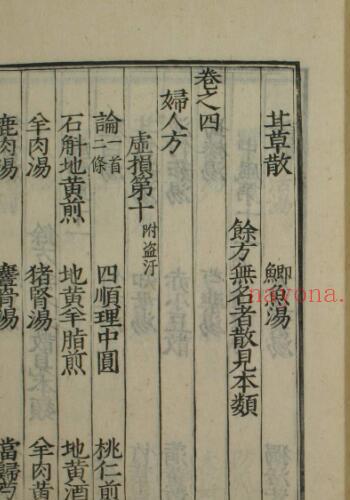 甘草散 鯽魚湯
餘方無名者散見本類
卷之四
婦人方
虛損第十 附盗汗
論一首二條 四順理中圓 桃仁煎
石斛地黄煎 地黄羊脂煎 地黄酒
羊肉湯 猪腎湯 羊肉黄
鹿肉湯 麞骨湯 當歸芍
navona.